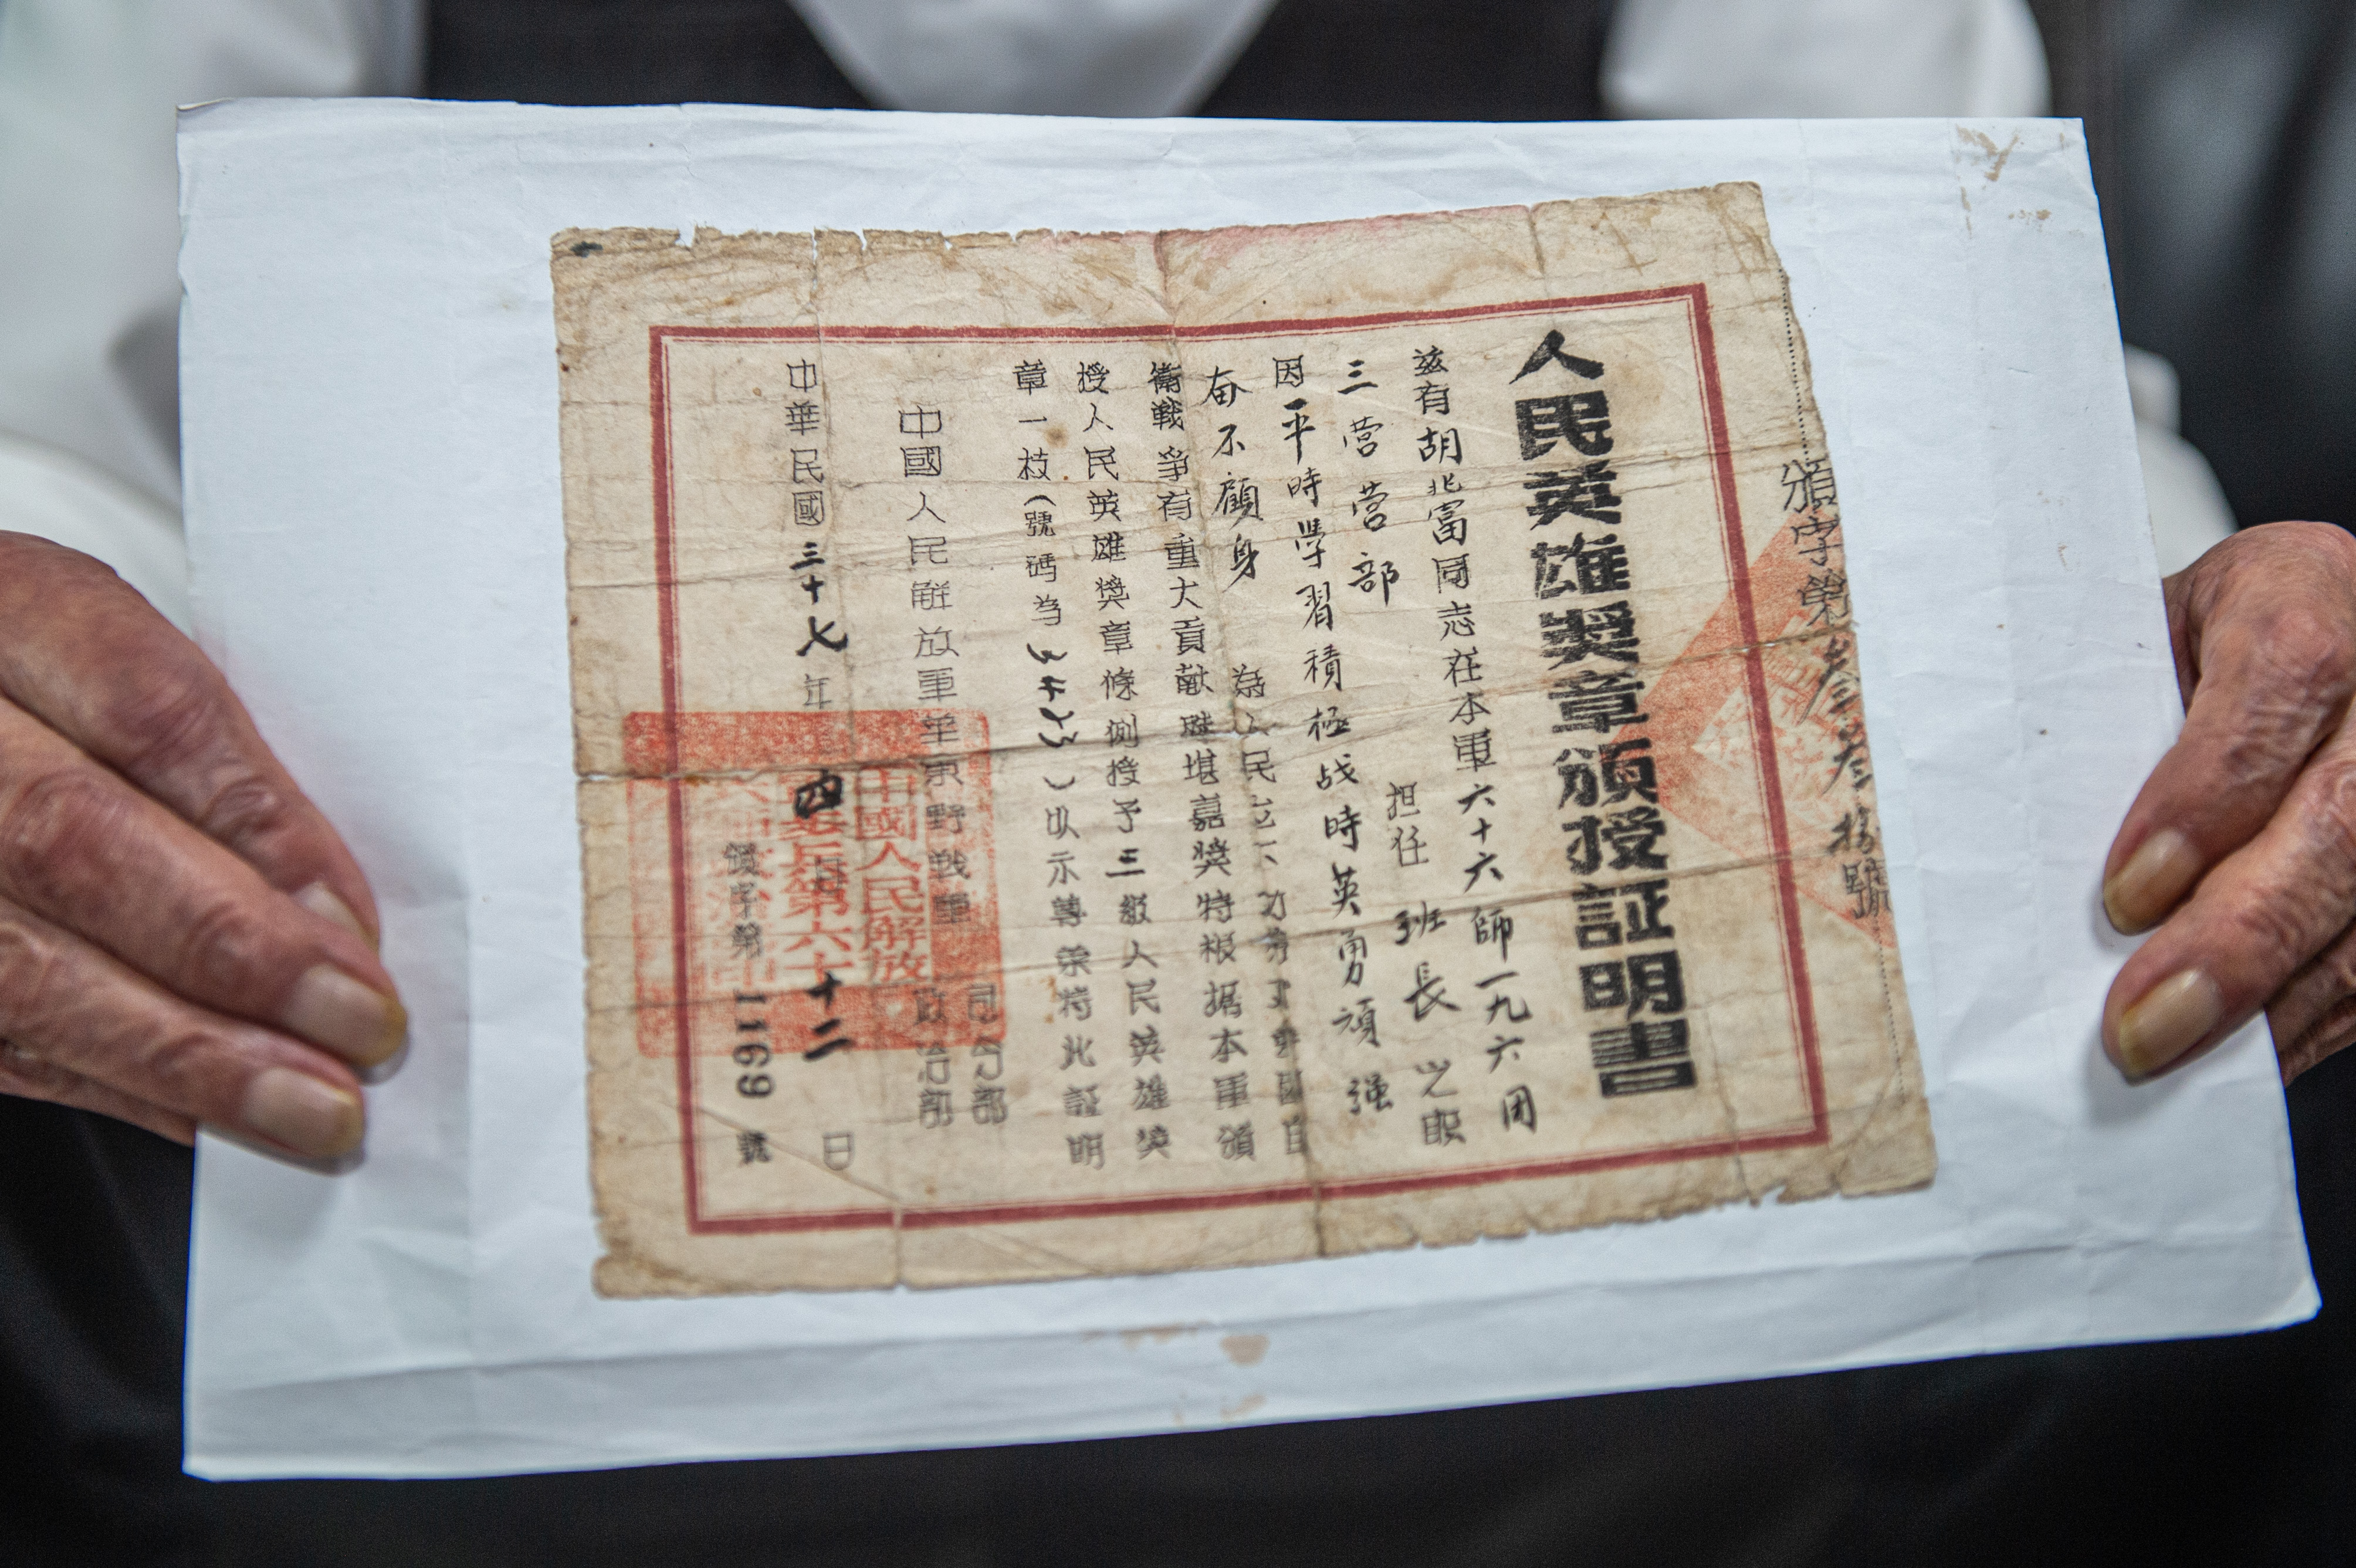 頒字第叁叁拾號
人民英雄奬章頒授証明書
兹有胡兆富同志在本軍六十六師一九六团
三营营部 担任 班長之职
因平時學習積極战時英勇頑强
奋不顧身 為人民立下功劳
衞戰爭有重大貢献殊堪嘉獎特根据本軍頒
授人民英雄獎章條例授予三級人民英雄奬
章一枝(號碼為)以示尊荣特此証明
中國人民解放軍華東野战軍 司令部
政治部
中華民國三十七年 四月十二日
頒字第 1169 號
中國人民解放